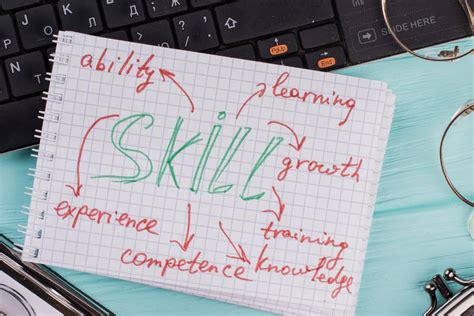 SLIDE HERE
PgUp
End
ability
learning
SKILL
growth
experience
training
competence
knowledge